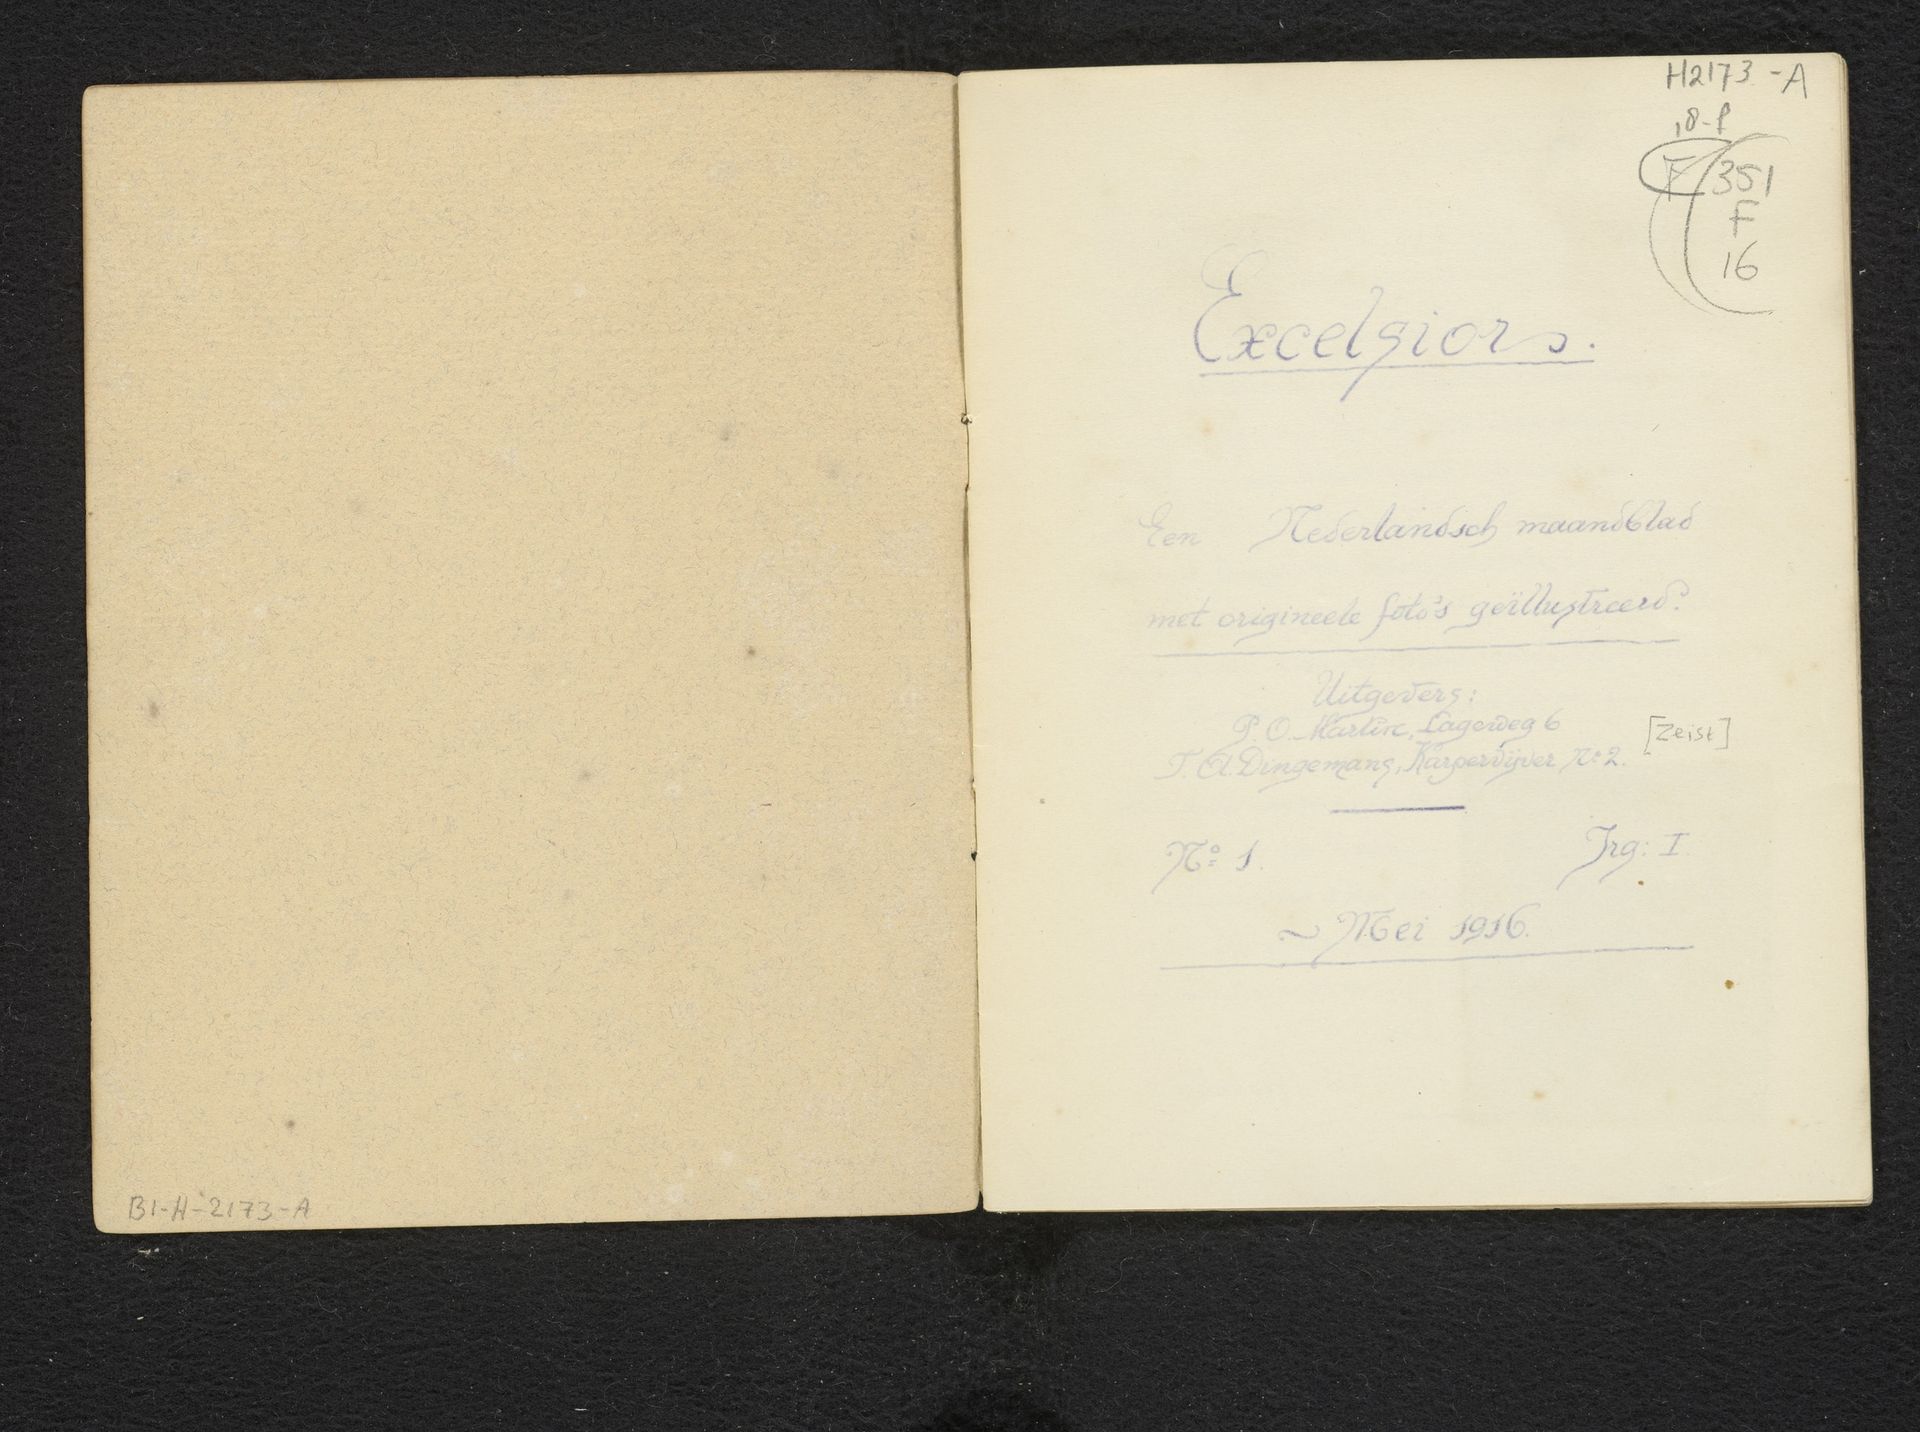 B1-H-2173-A
H2173-A
18-P
F 351
F
16
Excelsiors.
Een Nederlandsch maandblad
met origineele foto's geïllustreerd.
Uitgevers:
P. O. Martin, Lageweg 6
T. A. Dingemans, Karpervijver No 2.
[Zeist]
No 1.
Jrg: I
~ Mei 1916.